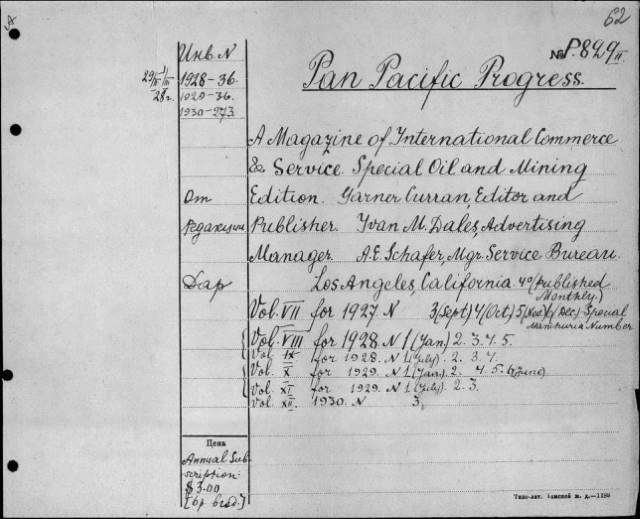 62
Инв. N
№ P.829 II.
29/IV 1/III
28 г.
1928-36.
1929-36.
1930-273.
Pan Pacific Progress.
A Magazine of International Commerce
& Service. Special Oil and Mining
от
Edition. Garner Curran, Editor and
редакции
Publisher. Ivan M. Dales, Advertising
Manager. A.E. Schafer, Mgr. Service Bureau.
Дар
Los Angeles, California. 4° (Published
Monthly.)
Vol. VII for 1927 N 3 (Sept) 4 (Oct) 5 (Nov) 6 (Dec) Special
Manchuria Number
Vol. VIII for 1928 N 1 (Jan.) 2. 3. 4. 5.
Vol. IX for 1928. N 1 (July). 2. 3. 4.
Vol. X for 1929. N 1 (Jan.) 2. 4. 5. 6 (June)
Vol. XI for 1929. N 1 (July). 2. 3.
Vol. XII. 1930. N 3.
Цена
Annual Sub-
scription:
$3.00
Типо-лит. ж. д.—1189